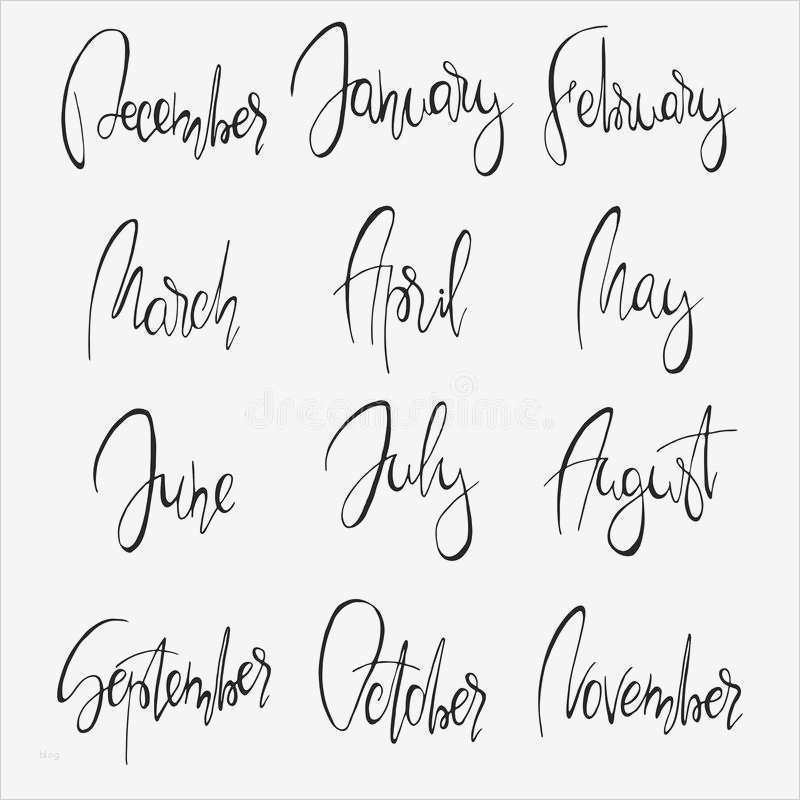 December January February
March April May
dreamstime.
June July August
September October November
blog